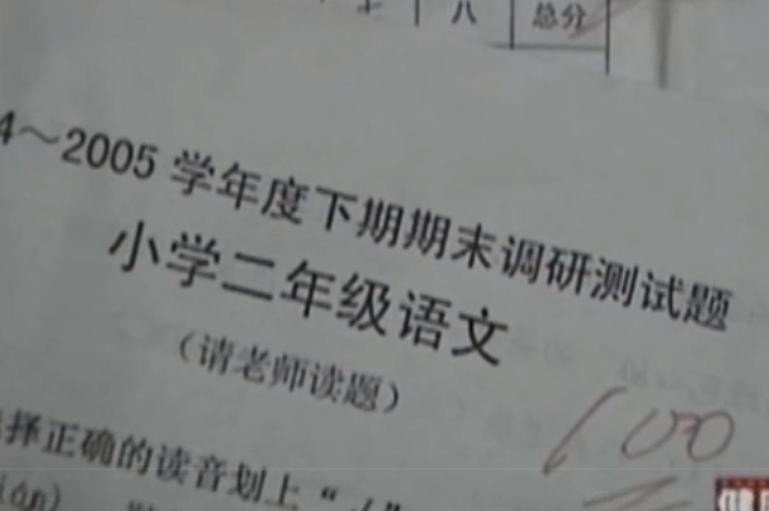 七 八 总分
4～2005 学年度下期期末调研测试题
小学二年级语文
（请老师读题）
择正确的读音划上“√”
100